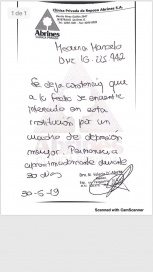 1 de 1
Clínica Privada de Reposo Abrines S.A.
Abrines
Medina Marcelo
DNI 16.
Se deja constancia que
a la fecha se encuentra
internado en esta
institución por un
cuadro de depresión
mayor. Permanecerá
aproximadamente durante
30 días
30-5-19
Scanned with CamScanner